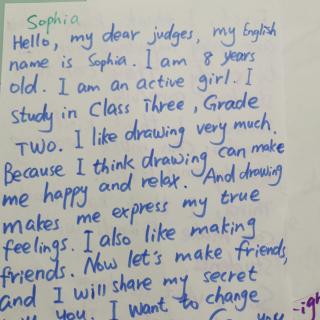 Sophia
Hello, my dear judges, my English
name is Sophia. I am 8 years
old. I am an active girl. I
study in Class Three, Grade
TWO. I like drawing very much.
Because I think drawing can make
me happy and relax. And drawing
makes me express my true
feelings. I also like making
friends. Now let's make friends,
and I will share my secret
you. I want to change
you